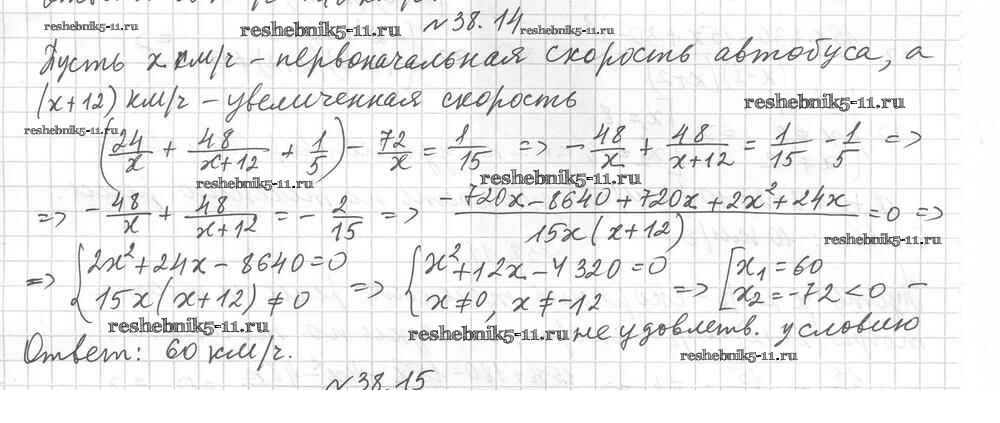 reshebnik5-11.ru reshebnik5-11.ru №38.14 reshebnik5-11.ru
Пусть x км/ч - первоначальная скорость автобуса, а
(x+12) км/ч - увеличенная скорость reshebnik5-11.ru
reshebnik5-11.ru
(24/x + 48/(x+12) + 1/5) - 72/x = 1/15 => -48/x + 48/(x+12) = 1/15 - 1/5 =>
reshebnik5-11.ru reshebnik5-11.ru
=> -48/x + 48/(x+12) = -2/15 => (-720x-8640+720x+2x²+24x)/(15x(x+12)) = 0 =>
reshebnik5-11.ru
=> {2x²+24x-8640=0 => {x²+12x-4320=0 => [x₁=60
15x(x+12)≠0 x≠0, x≠-12 x₂=-72<0 -
reshebnik5-11.ru reshebnik5-11.ru не удовлетв. условию
Ответ: 60 км/ч. reshebnik5-11.ru
№38.15